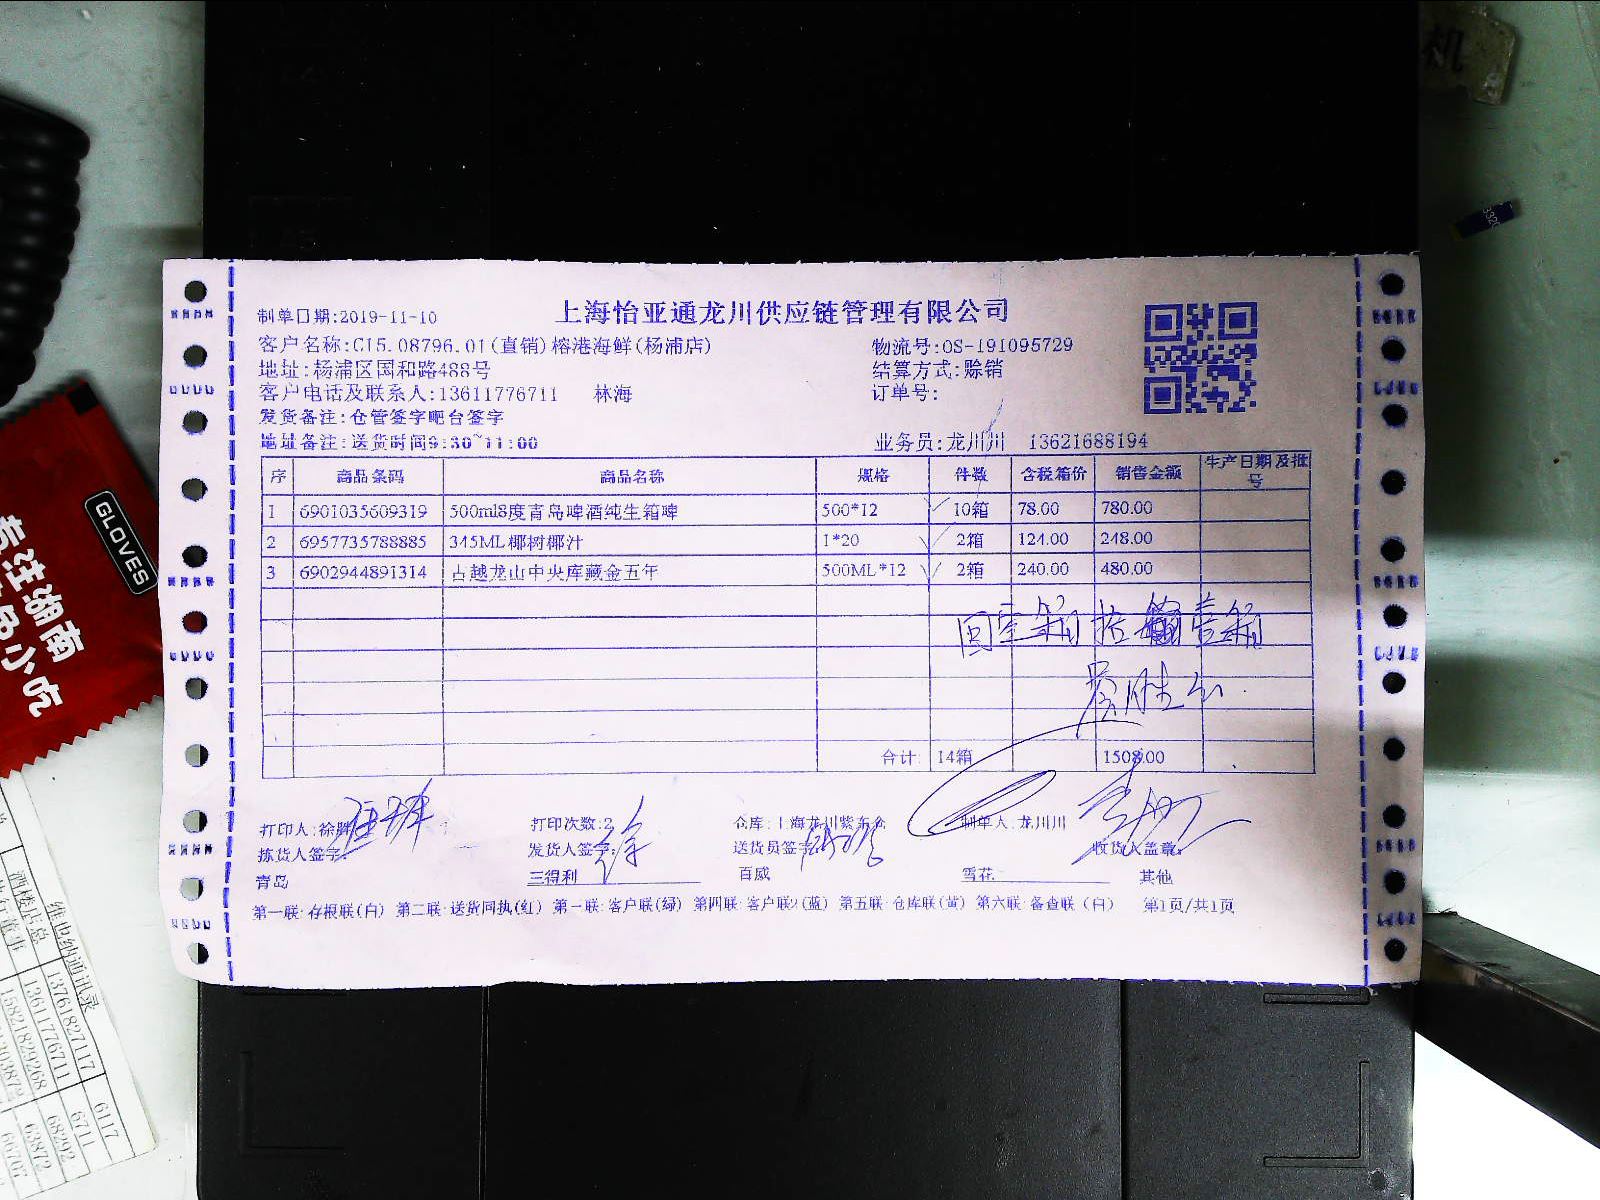 机
3320
GLOVES
专注湖南
色小吃
制单日期:2019-11-10
上海怡亚通龙川供应链管理有限公司
客户名称:C15.08796.01(直销)榕港海鲜(杨浦店)
物流号:OS-191095729
地址:杨浦区国和路488号
结算方式:赊销
客户电话及联系人:13611776711 林海
订单号:
发货备注:仓管签字吧台签字
地址备注:送货时间9:30~11:00
业务员:龙川川 13621688194
序 商品条码 商品名称 规格 件数 含税箱价 销售金额 生产日期及批号
1 6901035609319 500ml8度青岛啤酒纯生箱啤 500*12 10箱 78.00 780.00
2 6957735788885 345ML椰树椰汁 1*20 2箱 124.00 248.00
3 6902944891314 古越龙山中央库藏金五年 500ML*12 2箱 240.00 480.00
合计: 14箱 1508.00
打印人:徐 打印次数:2 仓库:上海龙川紫东仓 制单人:龙川川
拣货人签字: 发货人签字: 送货员签字: 收货人盖章:
徐
青岛 三得利 百威 雪花 其他
第一联:存根联(白) 第二联:送货回执(红) 第三联:客户联(绿) 第四联:客户联2(蓝) 第五联:仓库联(黄) 第六联:备查联(白) 第1页/共1页
维也纳通讯录
酒楼店总
13761827117 6117
13611776711 6711
15821829268 68292
63872
66767